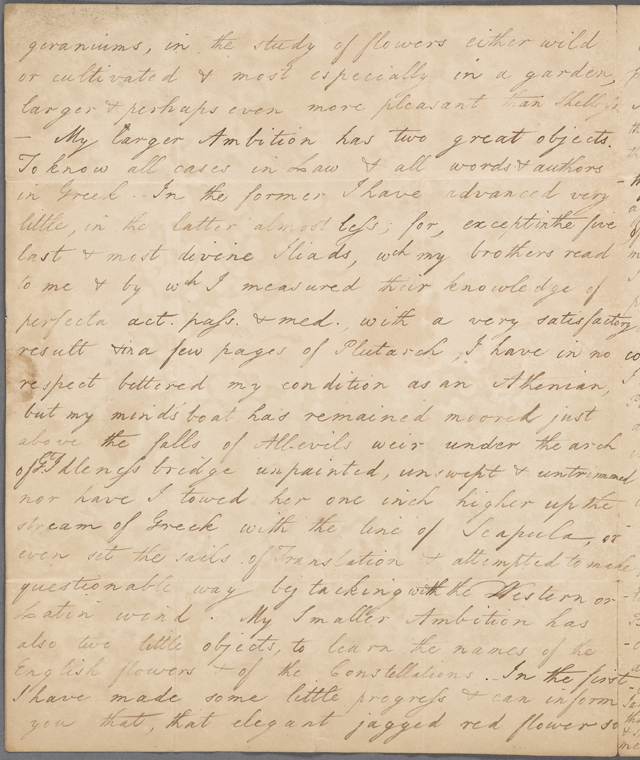 geraniums, in the study of flowers either wild
or cultivated & most especially in a garden,
larger & perhaps even more pleasant than Shelley's
– My larger Ambition has two great objects.
To know all cases in Law & all words & authors
in Greek. In the former I have advanced very
little, in the latter almost less; for, except in the five
last & most divine Iliads, wch my brothers read
to me & by wh I measured their knowledge of
perfecta act. pass. & med., with a very satisfactory
result & in a few pages of Plutarch, I have in no
respect bettered my condition as an Athenian,
but my mind's boat has remained moored just
above the falls of All-evils weir under the arch
of Idleness bridge unpainted, unswept & untrimmed
nor have I towed her one inch higher up the
stream of Greek with the line of Scapula, or
even set the sails of Translation & attempted to make
questionable way by tacking with the Western or
Latin wind. My Smaller Ambition has
also two little objects, to learn the names of the
English flowers & of the Constellations. – In the first
I have made some little progress & can inform
you that, that elegant jagged red flower so